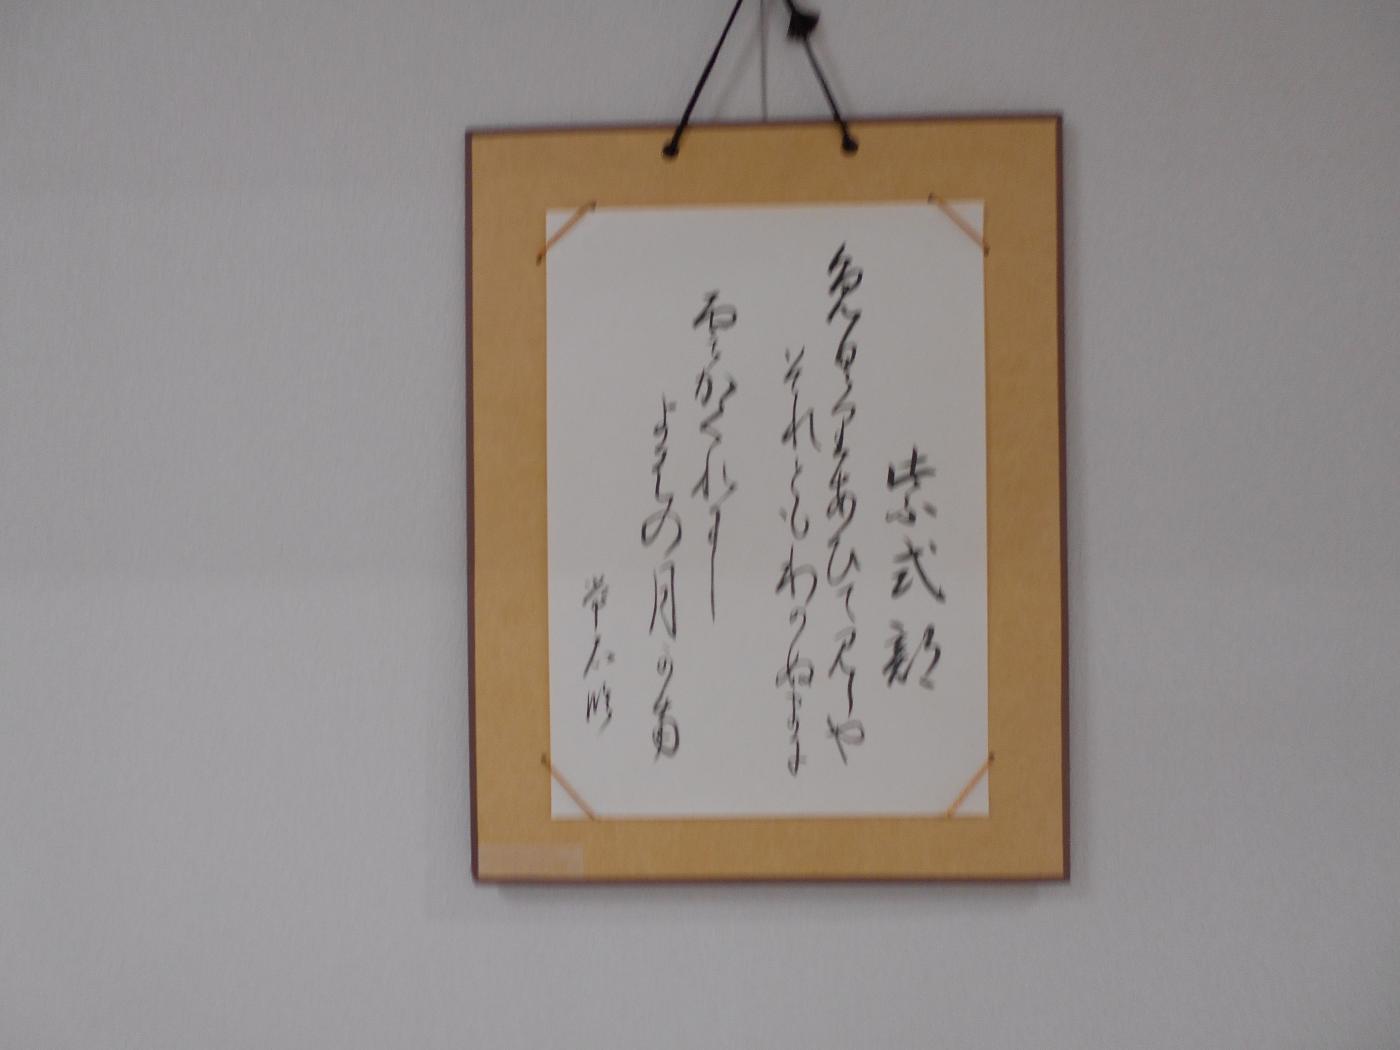 紫式部
免具里あひて見しや
それともわかぬまに
雲かくれにし
よはの月可菊